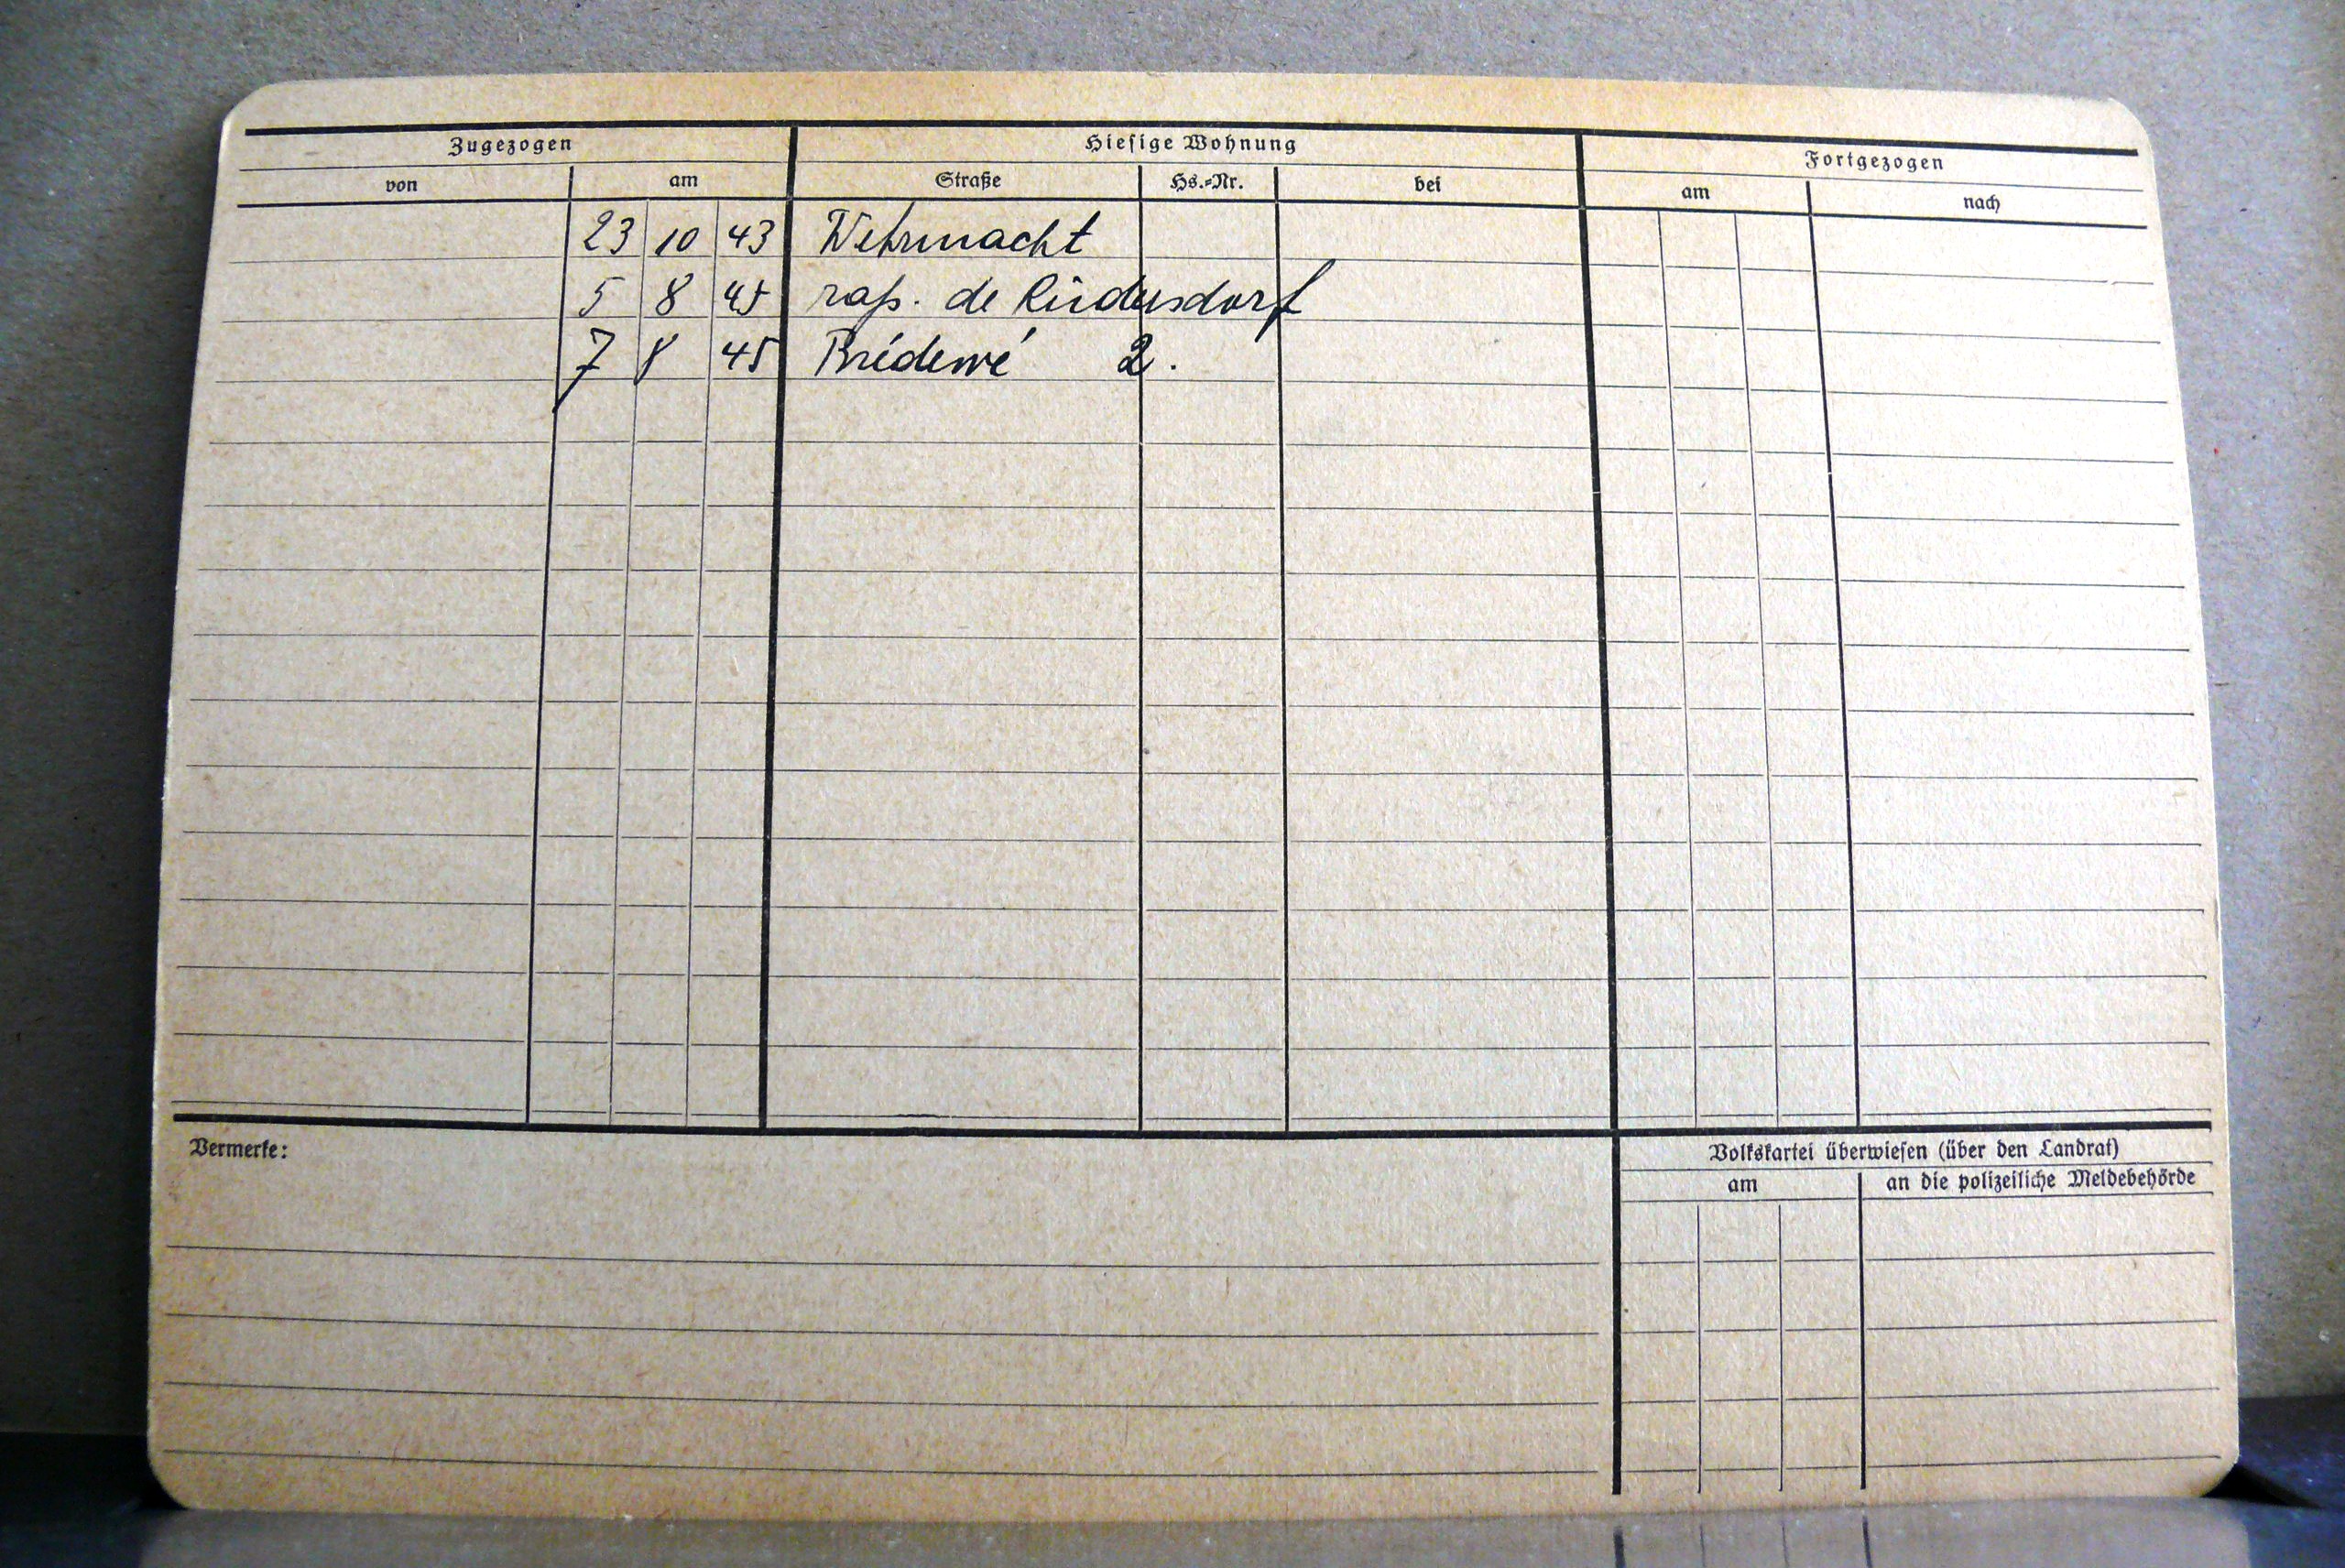 Zugezogen Hiesige Wohnung Fortgezogen
von am Straße Hs.-Nr. bei am nach
23 10 43 Wehrmacht
5 8 45 rap. de
7 8 45 2.
Vermerke: Volkskartei überwiesen (über den Landrat)
am an die polizeiliche Meldebehörde